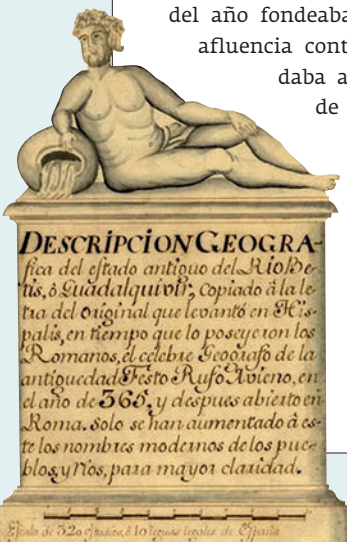 del año fondeaba
afluencia cont
daba a
de
DESCRIPCION GEOGRA-
fica del estado antiguo del Rio Be-
tis, ò Guadalquivir, Copiado à la le-
tra del original que levantó en His-
palis, en tiempo que lo poseyeron los
Romanos, el célebre Geografo de la
antiguedad Festo Rufo Avieno, en
el año de 365, y despues abierto en
Roma. Solo se han aumentado à es-
te los nombres modernos de los pue-
blos, y rios, para mayor claridad.
Escala de 320 estadios, ò 10 leguas legales de España